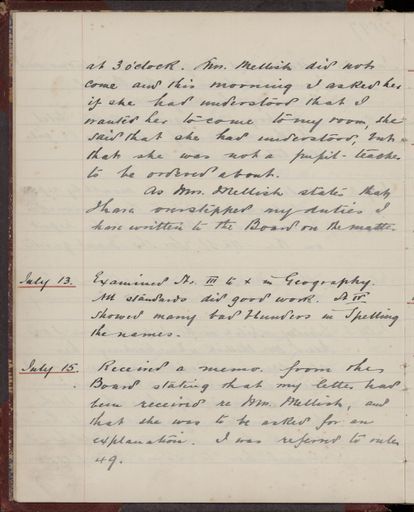 at 3 o'clock. Mrs. Mellish did not
come and this morning I asked her
if she had understood that I
wanted her to come to my room, she
said that she had understood, but
that she was not a pupil-teacher
to be ordered about.
As Mrs. Mellish states that
I have overstepped my duties I
have written to the Board on the matter.
July 13. Examined Sts. III to X in Geography.
All standards did good work. St IV
showed many bad blunders in Spelling
the names.
July 15. Received a memo. from the
Board stating that my letter had
been received re Mrs. Mellish, and
that she was to be asked for an
explanation. I was referred to rules
49.